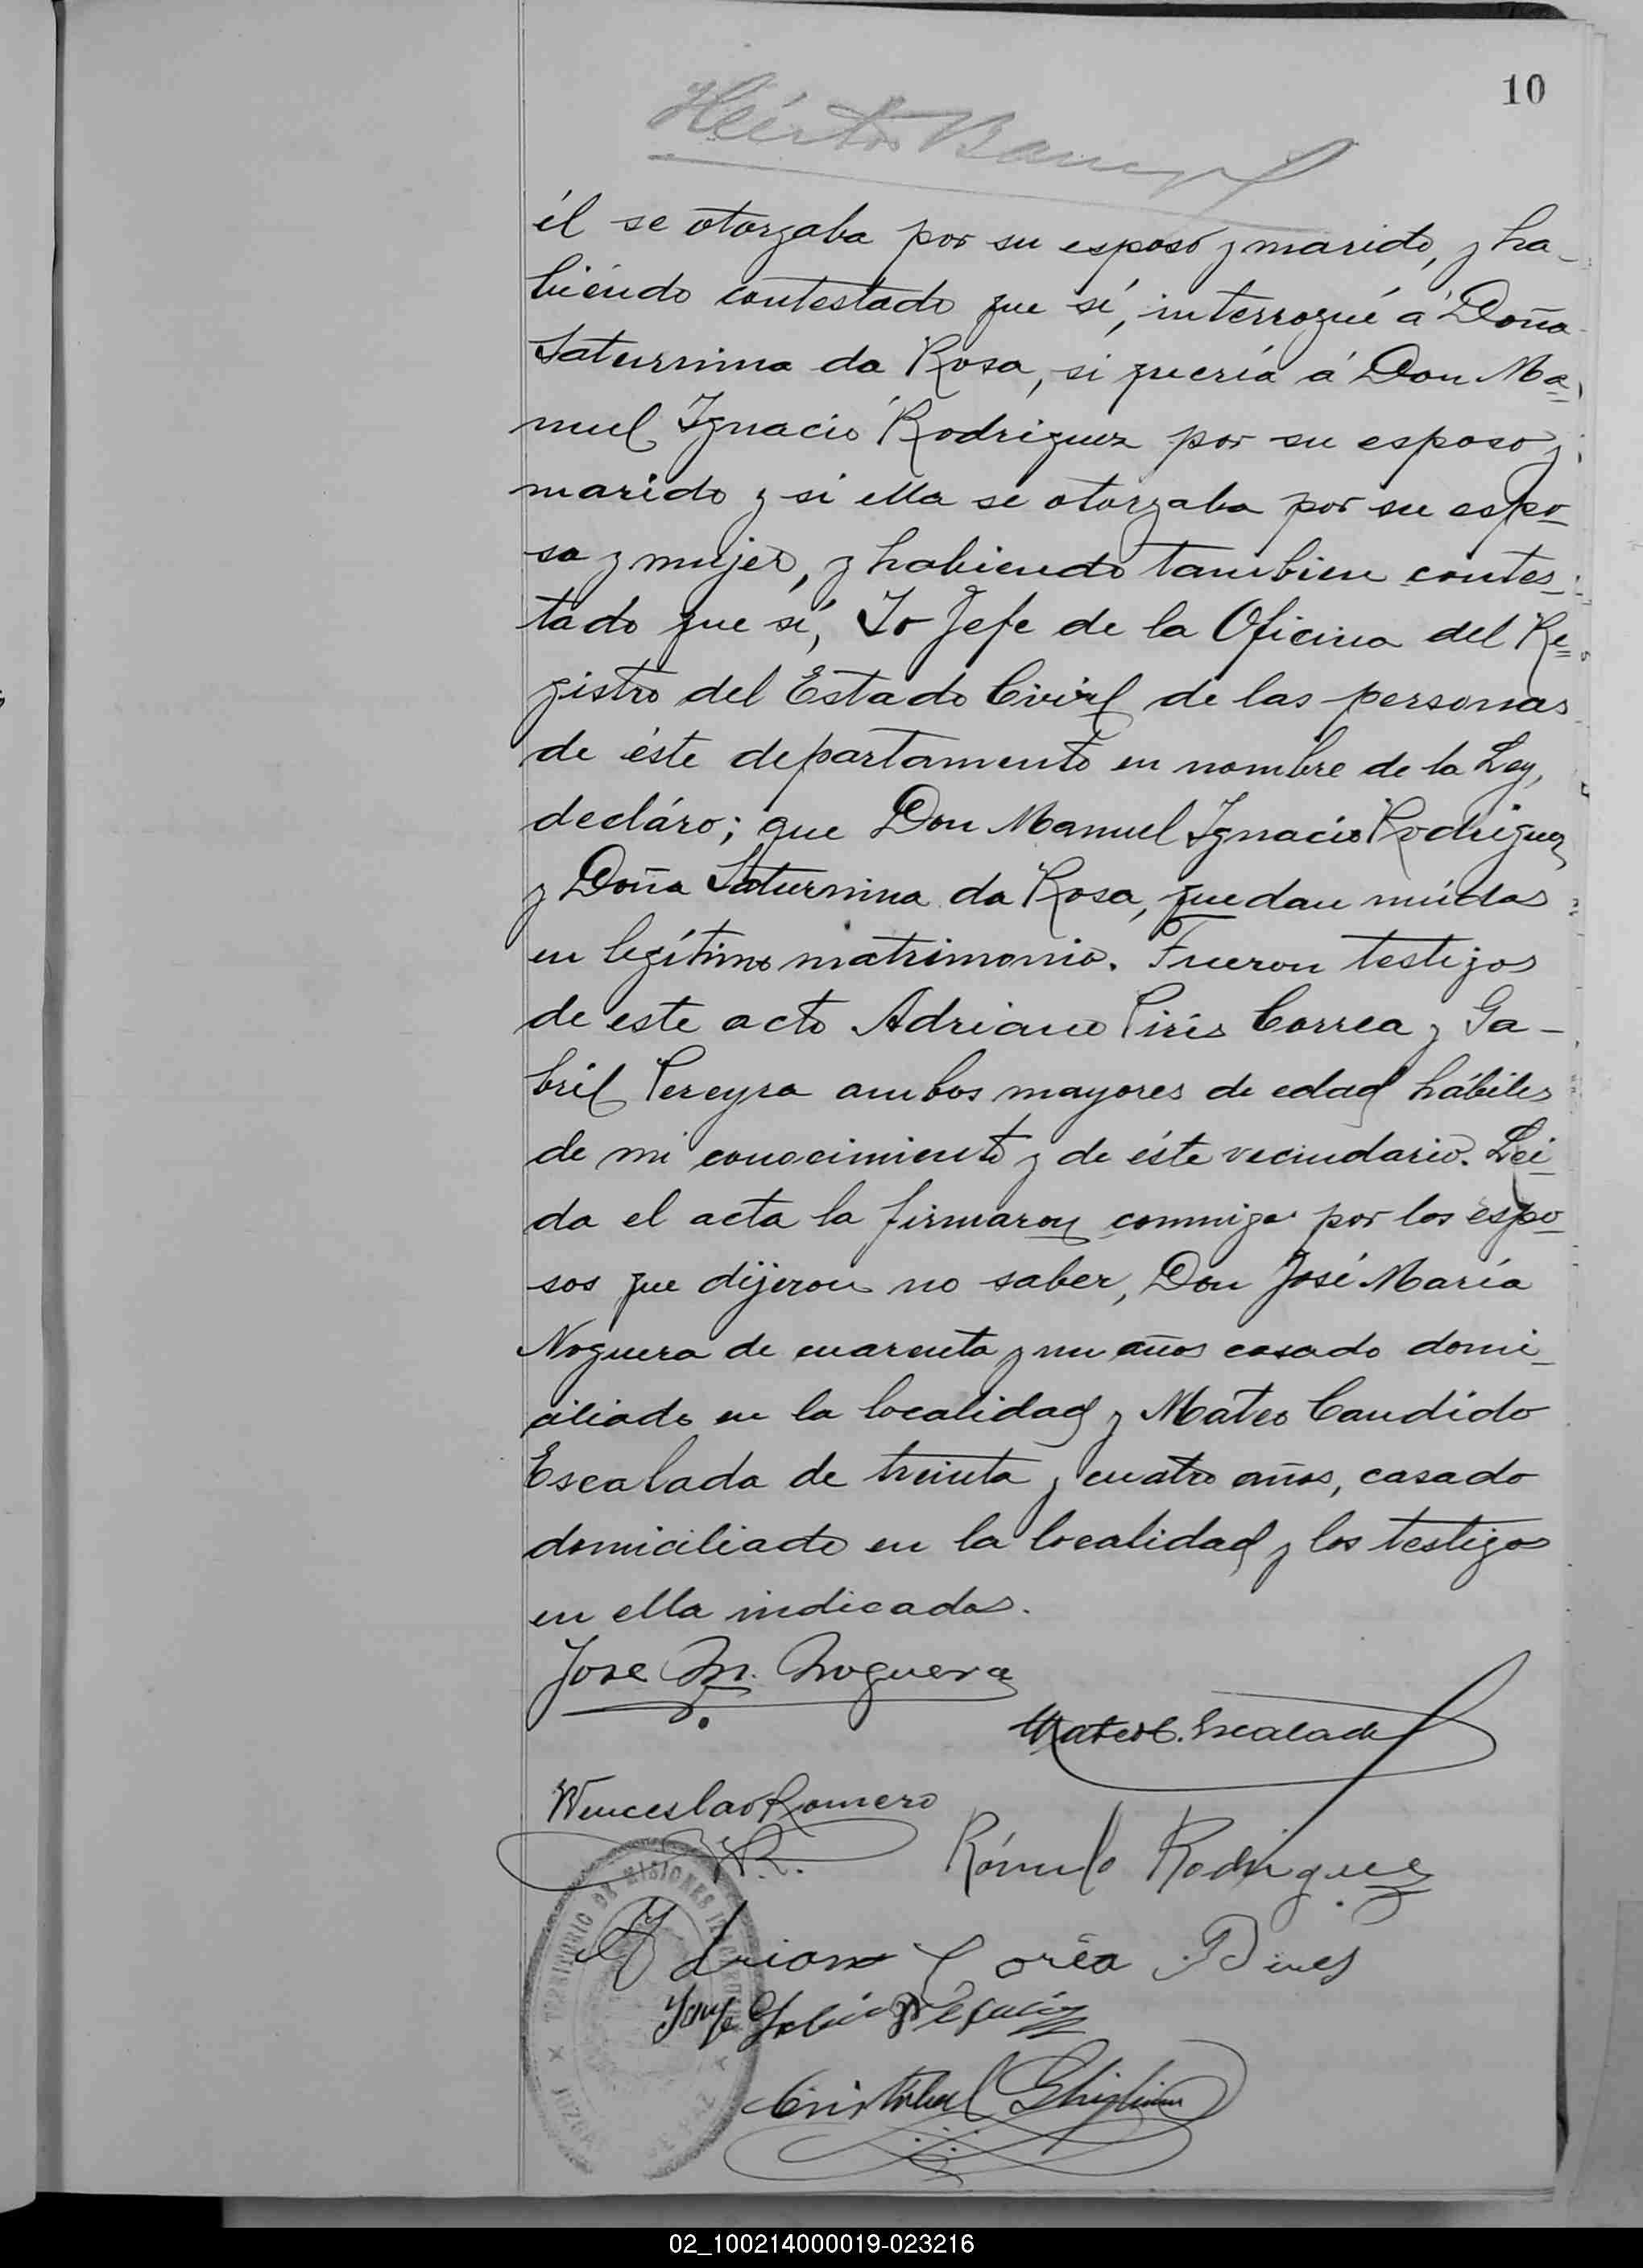 10
él se otorgaba por su esposo y marido, y ha-
biéndo contestado que sí, interrogué á Doña
Saturnina da Rosa, si quería á Don Ma-
nuel Ignacio Rodriguez por su esposo y
marido y si ella se otorgaba por su espo-
sa y mujer, y habiendo tambien contes-
tado que sí, Yo Jefe de la Oficina del Re-
gistro del Estado Civil de las personas
de éste departamento en nombre de la Ley,
decláro; que Don Manuel Ignacio Rodriguez
y Doña Saturnina da Rosa, quedan unidos
en legítimo matrimonio. Fueron testigos
de este acto Adriano Piris Correa y Ga-
bril Pereyra ambos mayores de edad hábiles
de mi conocimiento y de éste vecindario. Lei-
da el acta la firmaron conmigo por los espo-
sos que dijeron no saber, Don José María
Noguera de cuarenta y un años casado domi-
ciliado en la localidad y Mateo Candido
Escalada de treinta y cuatro años, casado
domiciliado en la localidad y los testigos
en ella indicados.
Jose M. Noguera
Mateo C. Escalada
Wenceslao Romero
WR.
Rómulo Rodriguez
Adriano Corêa Pires
Cristobal
TERRITORIO DE MISIONES
02_100214000019-023216